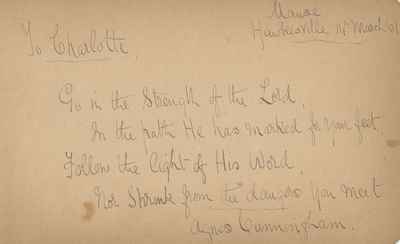 Manse
Hawkesville 14 March 01
To Charlotte,
Go in the Strength of the Lord,
In the path He has marked for your feet
Follow the light of His Word,
Nor Shrink from the dangers you meet
Agnes Cunningham.